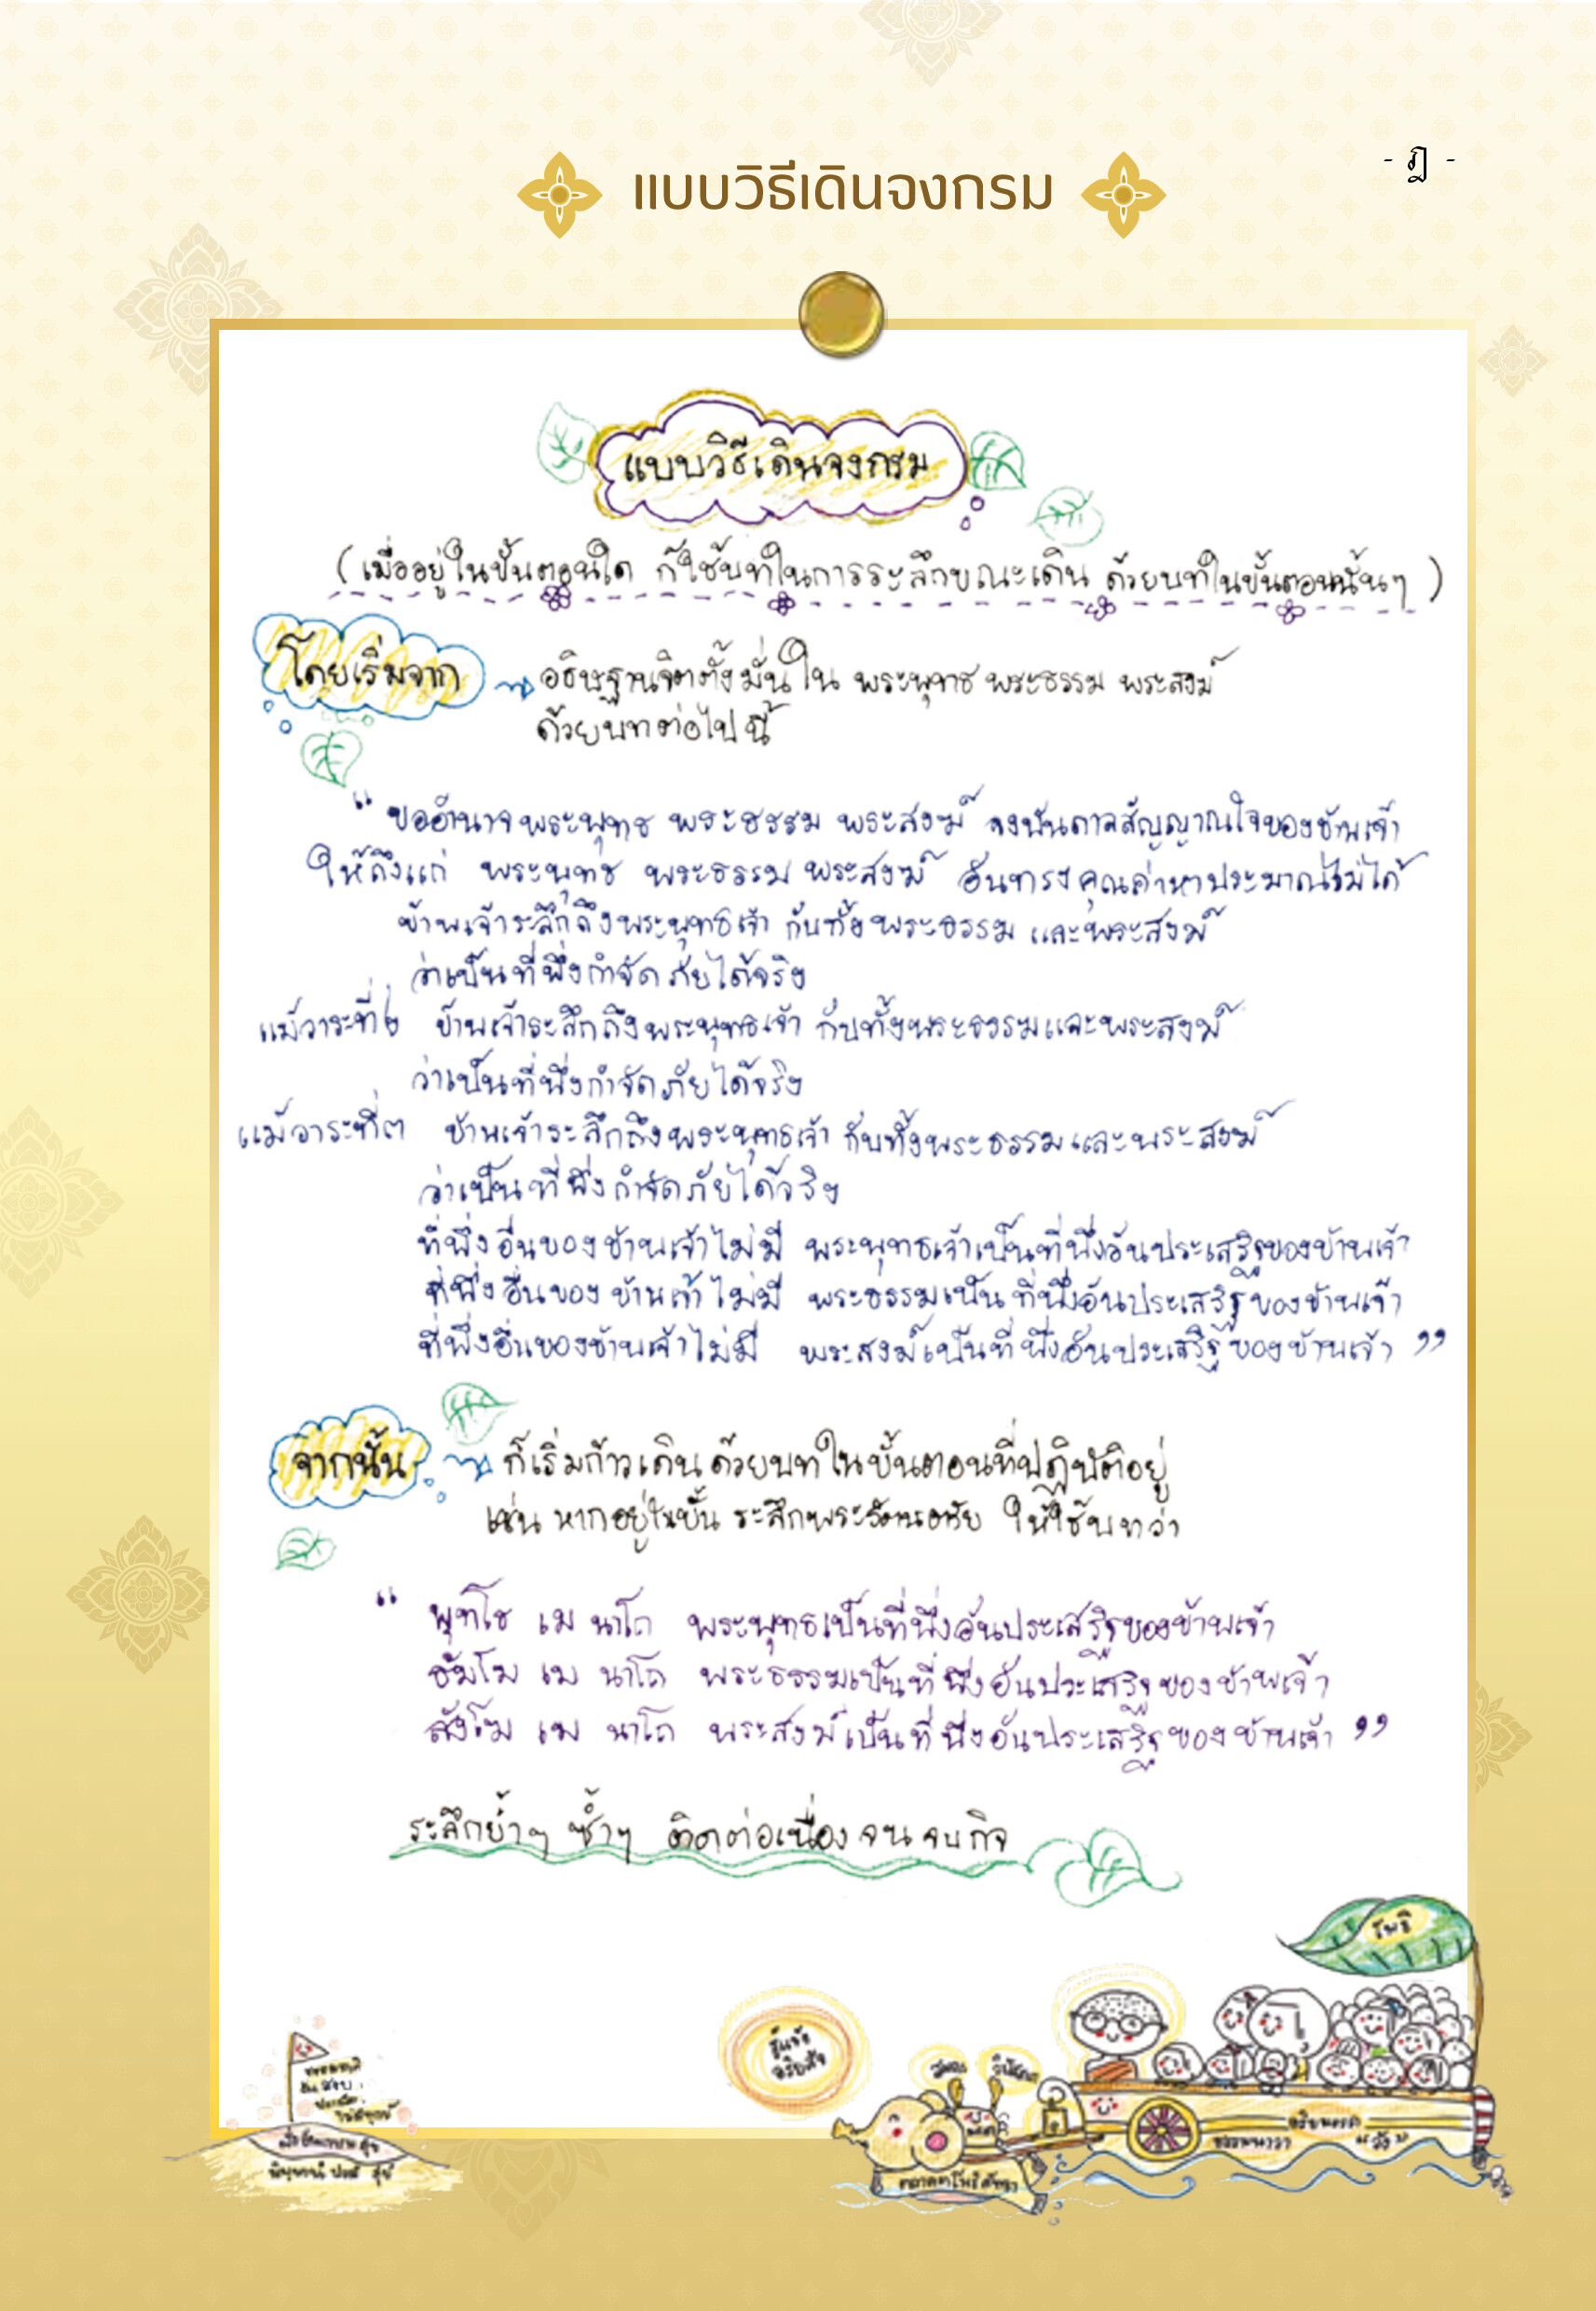 - ฎ -
แบบวิธีเดินจงกรม
แบบวิธีเดินจงกรม
(เมื่ออยู่ในขั้นตอนใด ก็ใช้บทในการระลึกขณะเดิน ด้วยบทในขั้นตอนนั้นๆ)
โดยเริ่มจาก อธิษฐานจิตตั้งมั่นใน พระพุทธ พระธรรม พระสงฆ์
ด้วยบทต่อไปนี้
“ ขออำนาจพระพุทธ พระธรรม พระสงฆ์ จงบันดาลสัญญาณใจของข้าพเจ้า
ให้ถึงแก่ พระพุทธ พระธรรม พระสงฆ์ อันทรงคุณค่าหาประมาณไม่ได้
ข้าพเจ้าระลึกถึงพระพุทธเจ้า กับทั้งพระธรรม และพระสงฆ์
ว่าเป็นที่พึ่งกำจัดภัยได้จริง
แม้วาระที่๒ ข้าพเจ้าระลึกถึงพระพุทธเจ้า กับทั้งพระธรรมและพระสงฆ์
ว่าเป็นที่พึ่งกำจัดภัยได้จริง
แม้วาระที่๓ ข้าพเจ้าระลึกถึงพระพุทธเจ้า กับทั้งพระธรรมและพระสงฆ์
ว่าเป็นที่พึ่งกำจัดภัยได้จริง
ที่พึ่งอื่นของข้าพเจ้าไม่มี พระพุทธเจ้าเป็นที่พึ่งอันประเสริฐของข้าพเจ้า
ที่พึ่งอื่นของข้าพเจ้าไม่มี พระธรรมเป็นที่พึ่งอันประเสริฐของข้าพเจ้า
ที่พึ่งอื่นของข้าพเจ้าไม่มี พระสงฆ์เป็นที่พึ่งอันประเสริฐของข้าพเจ้า ”
จากนั้น ก็เริ่มก้าวเดินด้วยบทในขั้นตอนที่ปฏิบัติอยู่
เช่น หากอยู่ในขั้น ระลึกพระรัตนตรัย ให้ใช้บทว่า
“ พุทโธ เม นาโถ พระพุทธเป็นที่พึ่งอันประเสริฐของข้าพเจ้า
ธัมโม เม นาโถ พระธรรมเป็นที่พึ่งอันประเสริฐของข้าพเจ้า
สังโฆ เม นาโถ พระสงฆ์เป็นที่พึ่งอันประเสริฐของข้าพเจ้า ”
ระลึกย้ำๆ ซ้ำๆ ติดต่อเนื่อง จนจบกิจ
โพธิ